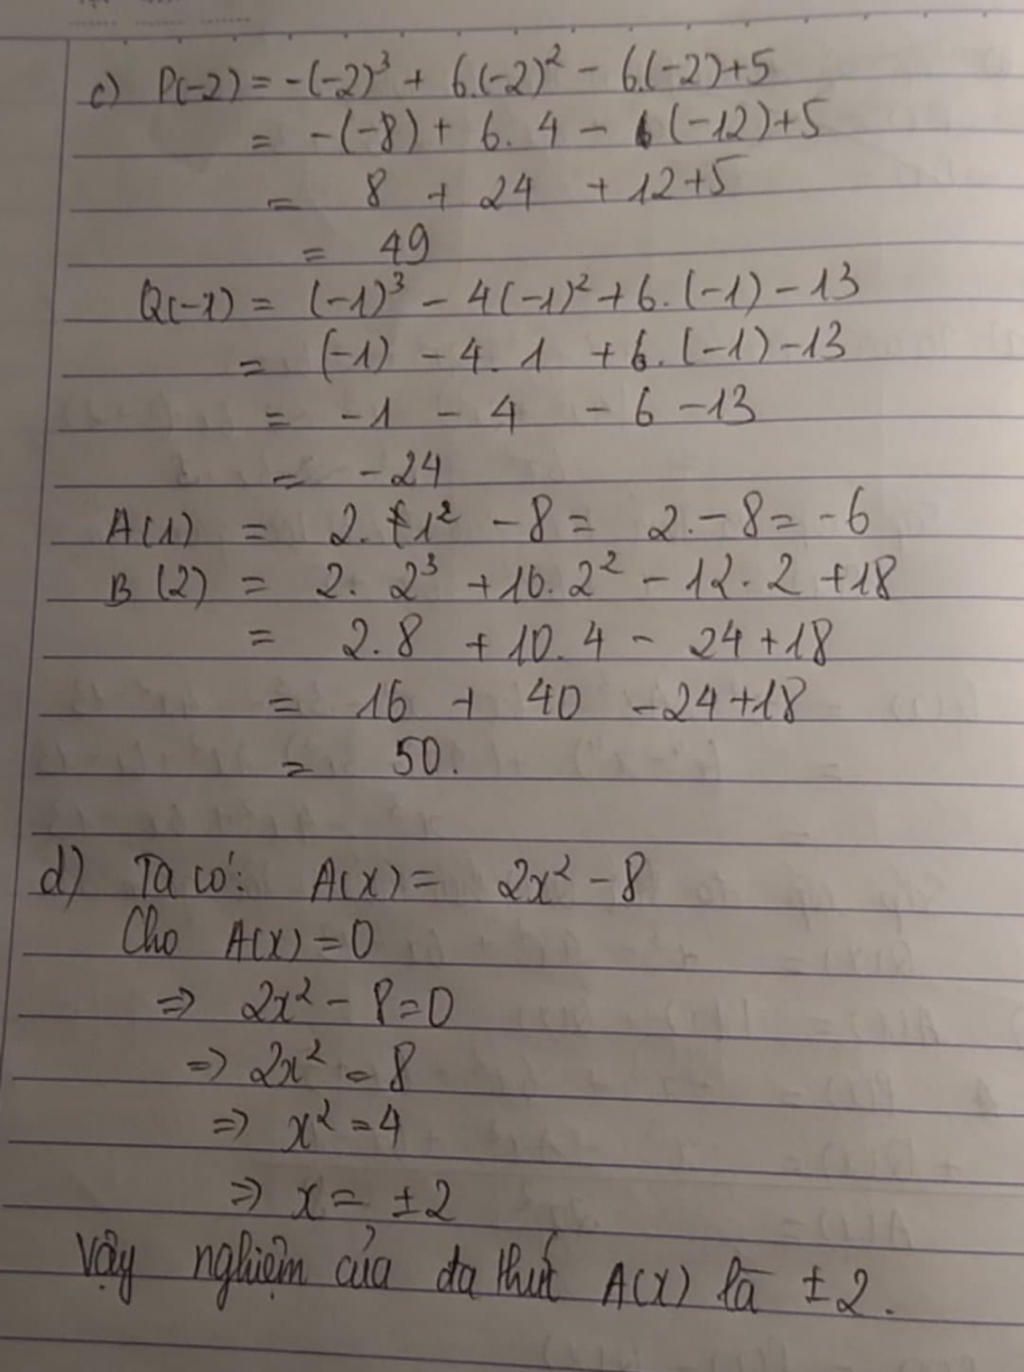 c) P(-2) = -(-2)³ + 6.(-2)² - 6.(-2)+5
= -(-8) + 6. 4 - (-12)+5
= 8 + 24 + 12+5
= 49
Q(-1) = (-1)³ - 4(-1)² + 6. (-1) - 13
= (-1) - 4. 1 + 6. (-1) - 13
= -1 - 4 - 6 - 13
= -24
A(1) = 2. 1² - 8 = 2. - 8 = - 6
B (2) = 2. 2³ + 10. 2² - 12. 2 + 18
= 2.8 + 10. 4 - 24 + 18
= 16 + 40 - 24 + 18
= 50.
d) Ta có: A(x) = 2x² - 8
Cho A(x) = 0
⇒ 2x² - 8 = 0
⇒ 2x² = 8
⇒ x² = 4
⇒ x = ±2
Vậy nghiệm của đa thức A(x) là ±2.